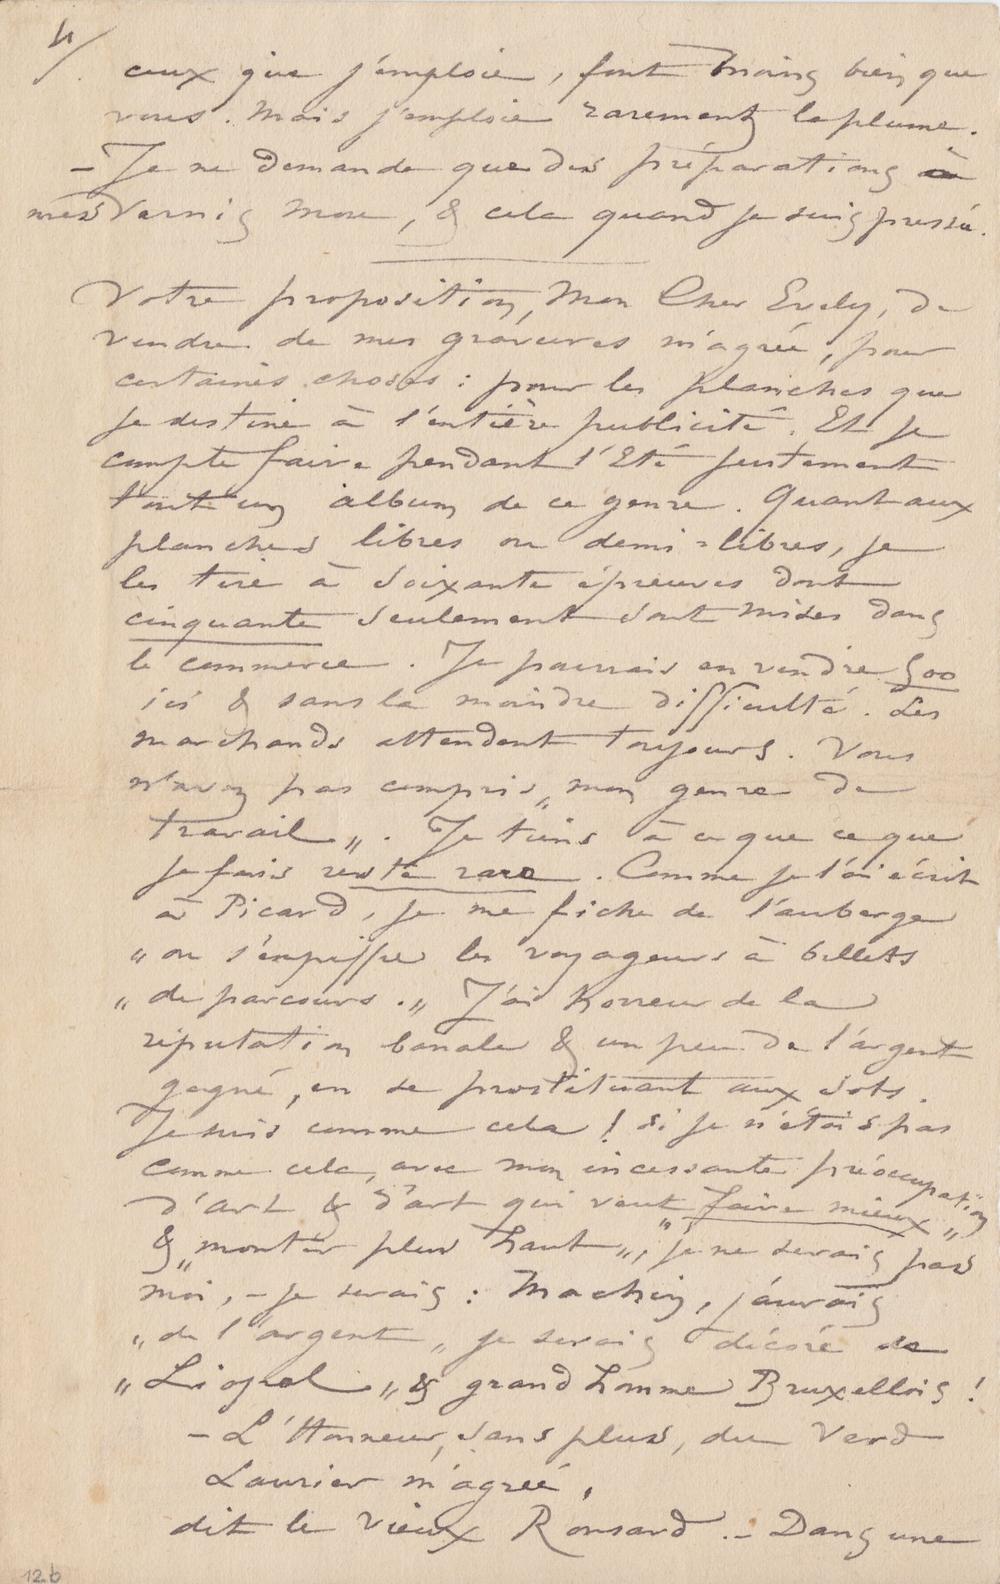 4/
ceux que j'emploie, font moins bien que
vous. Mais j'emploie rarement la plume.
– Je ne demande que des préparations à
mes Vernis mou, & cela quand je suis pressé.
Votre proposition, Mon Cher Evely, de
vendre de mes gravures m'agrée, pour
certaines choses : pour les planches que
je destine à l'entière publicité. Et je
compte faire pendant l'Eté justement
tout un album de ce genre. Quant aux
planches libres ou demi-libres, je
les tire à soixante épreuves dont
cinquante seulement sont mises dans
le commerce. Je pourrais en vendre 500
ici & sans la moindre difficulté. Les
marchands attendent toujours. Vous
n'avez pas compris „mon genre de
travail„. Je tiens à ce que ce que
je fais reste rare. Comme je l'ai écrit
à Picard, je me fiche de l'auberge
„ou s'empiffre les voyageurs à billets
„de parcours.„ J'ai horreur de la
réputation banale & un peu de l'argent
gagné, en se prostituant aux sots.
Je suis comme cela ! si je n'étais pas
comme cela, avec mon incessante préoccupation
d'art & d'art qui veut „faire mieux„
& „monter plus haut„, je ne serais pas
moi, – je serais : Machin, j'aurais
„de l'argent„ je serais décoré de
„Liopol„ & grand homme Bruxellois !
– L'Honneur, sans plus, du Verd
Laurier m'agrée,
dit le vieux Ronsard. – Dans une
12.b